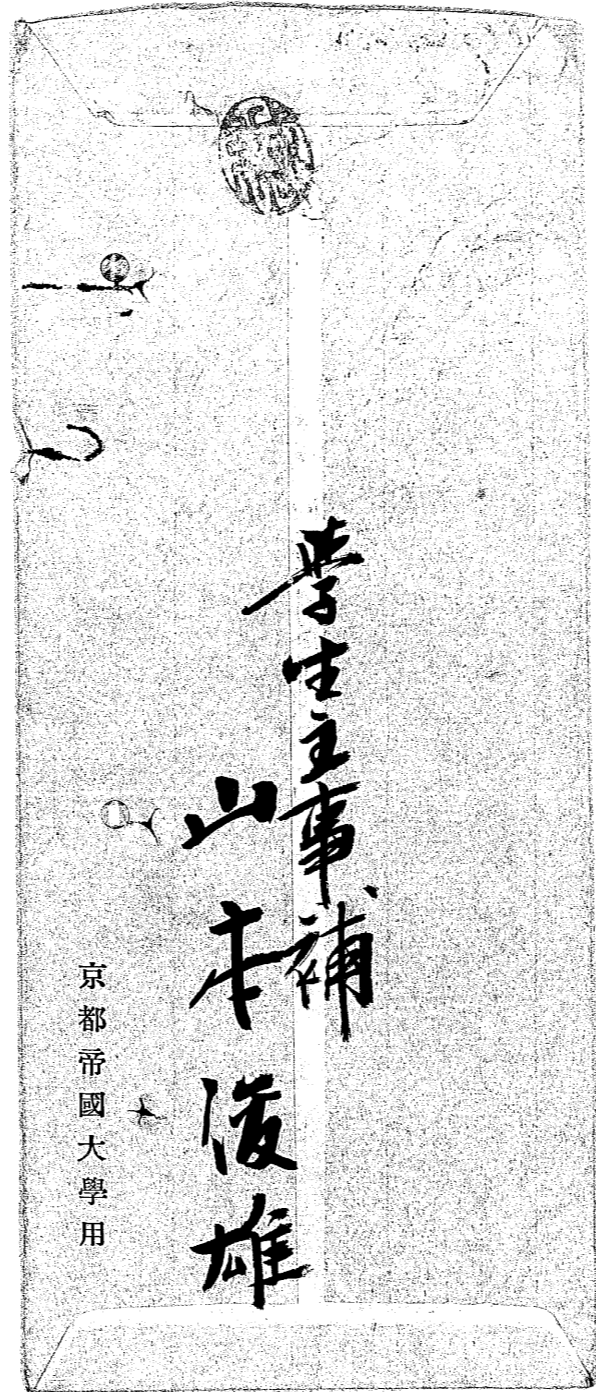 學生主事補
山本俊雄
京都帝國大學用